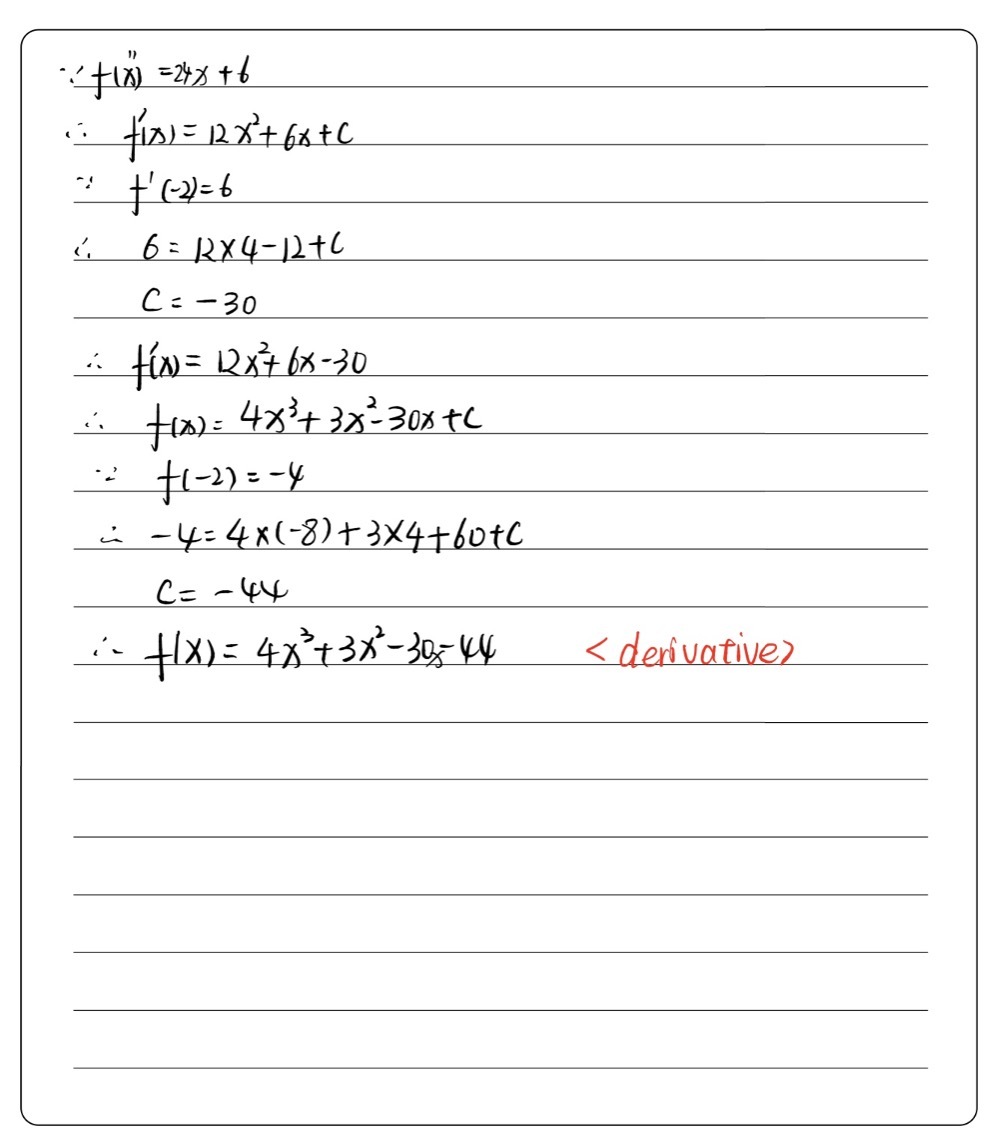 ∵ f(x)'' = 24x + 6
∴ f'(x) = 12x² + 6x + C
∵ f'(-2) = 6
∴ 6 = 12×4 - 12 + C
C = -30
∴ f'(x) = 12x² + 6x - 30
∴ f(x) = 4x³ + 3x² - 30x + C
∵ f(-2) = -4
∴ -4 = 4×(-8) + 3×4 + 60 + C
C = -44
∴ f(x) = 4x³ + 3x² - 30x - 44 <derivative>